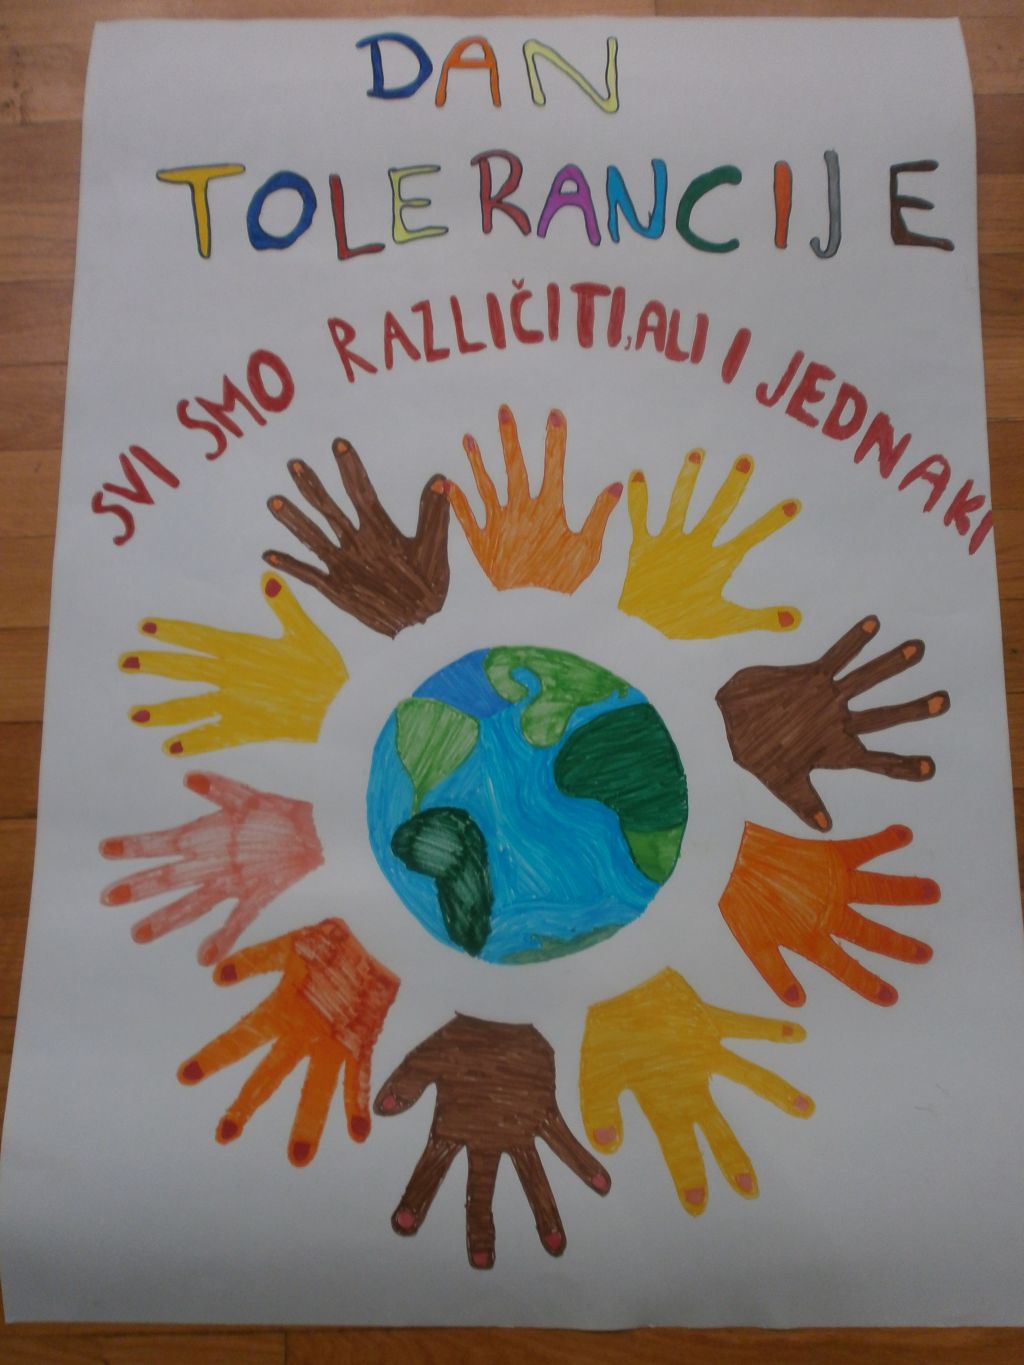 DAN
TOLERANCIJE
SVI SMO RAZLIČITI, ALI I JEDNAKI